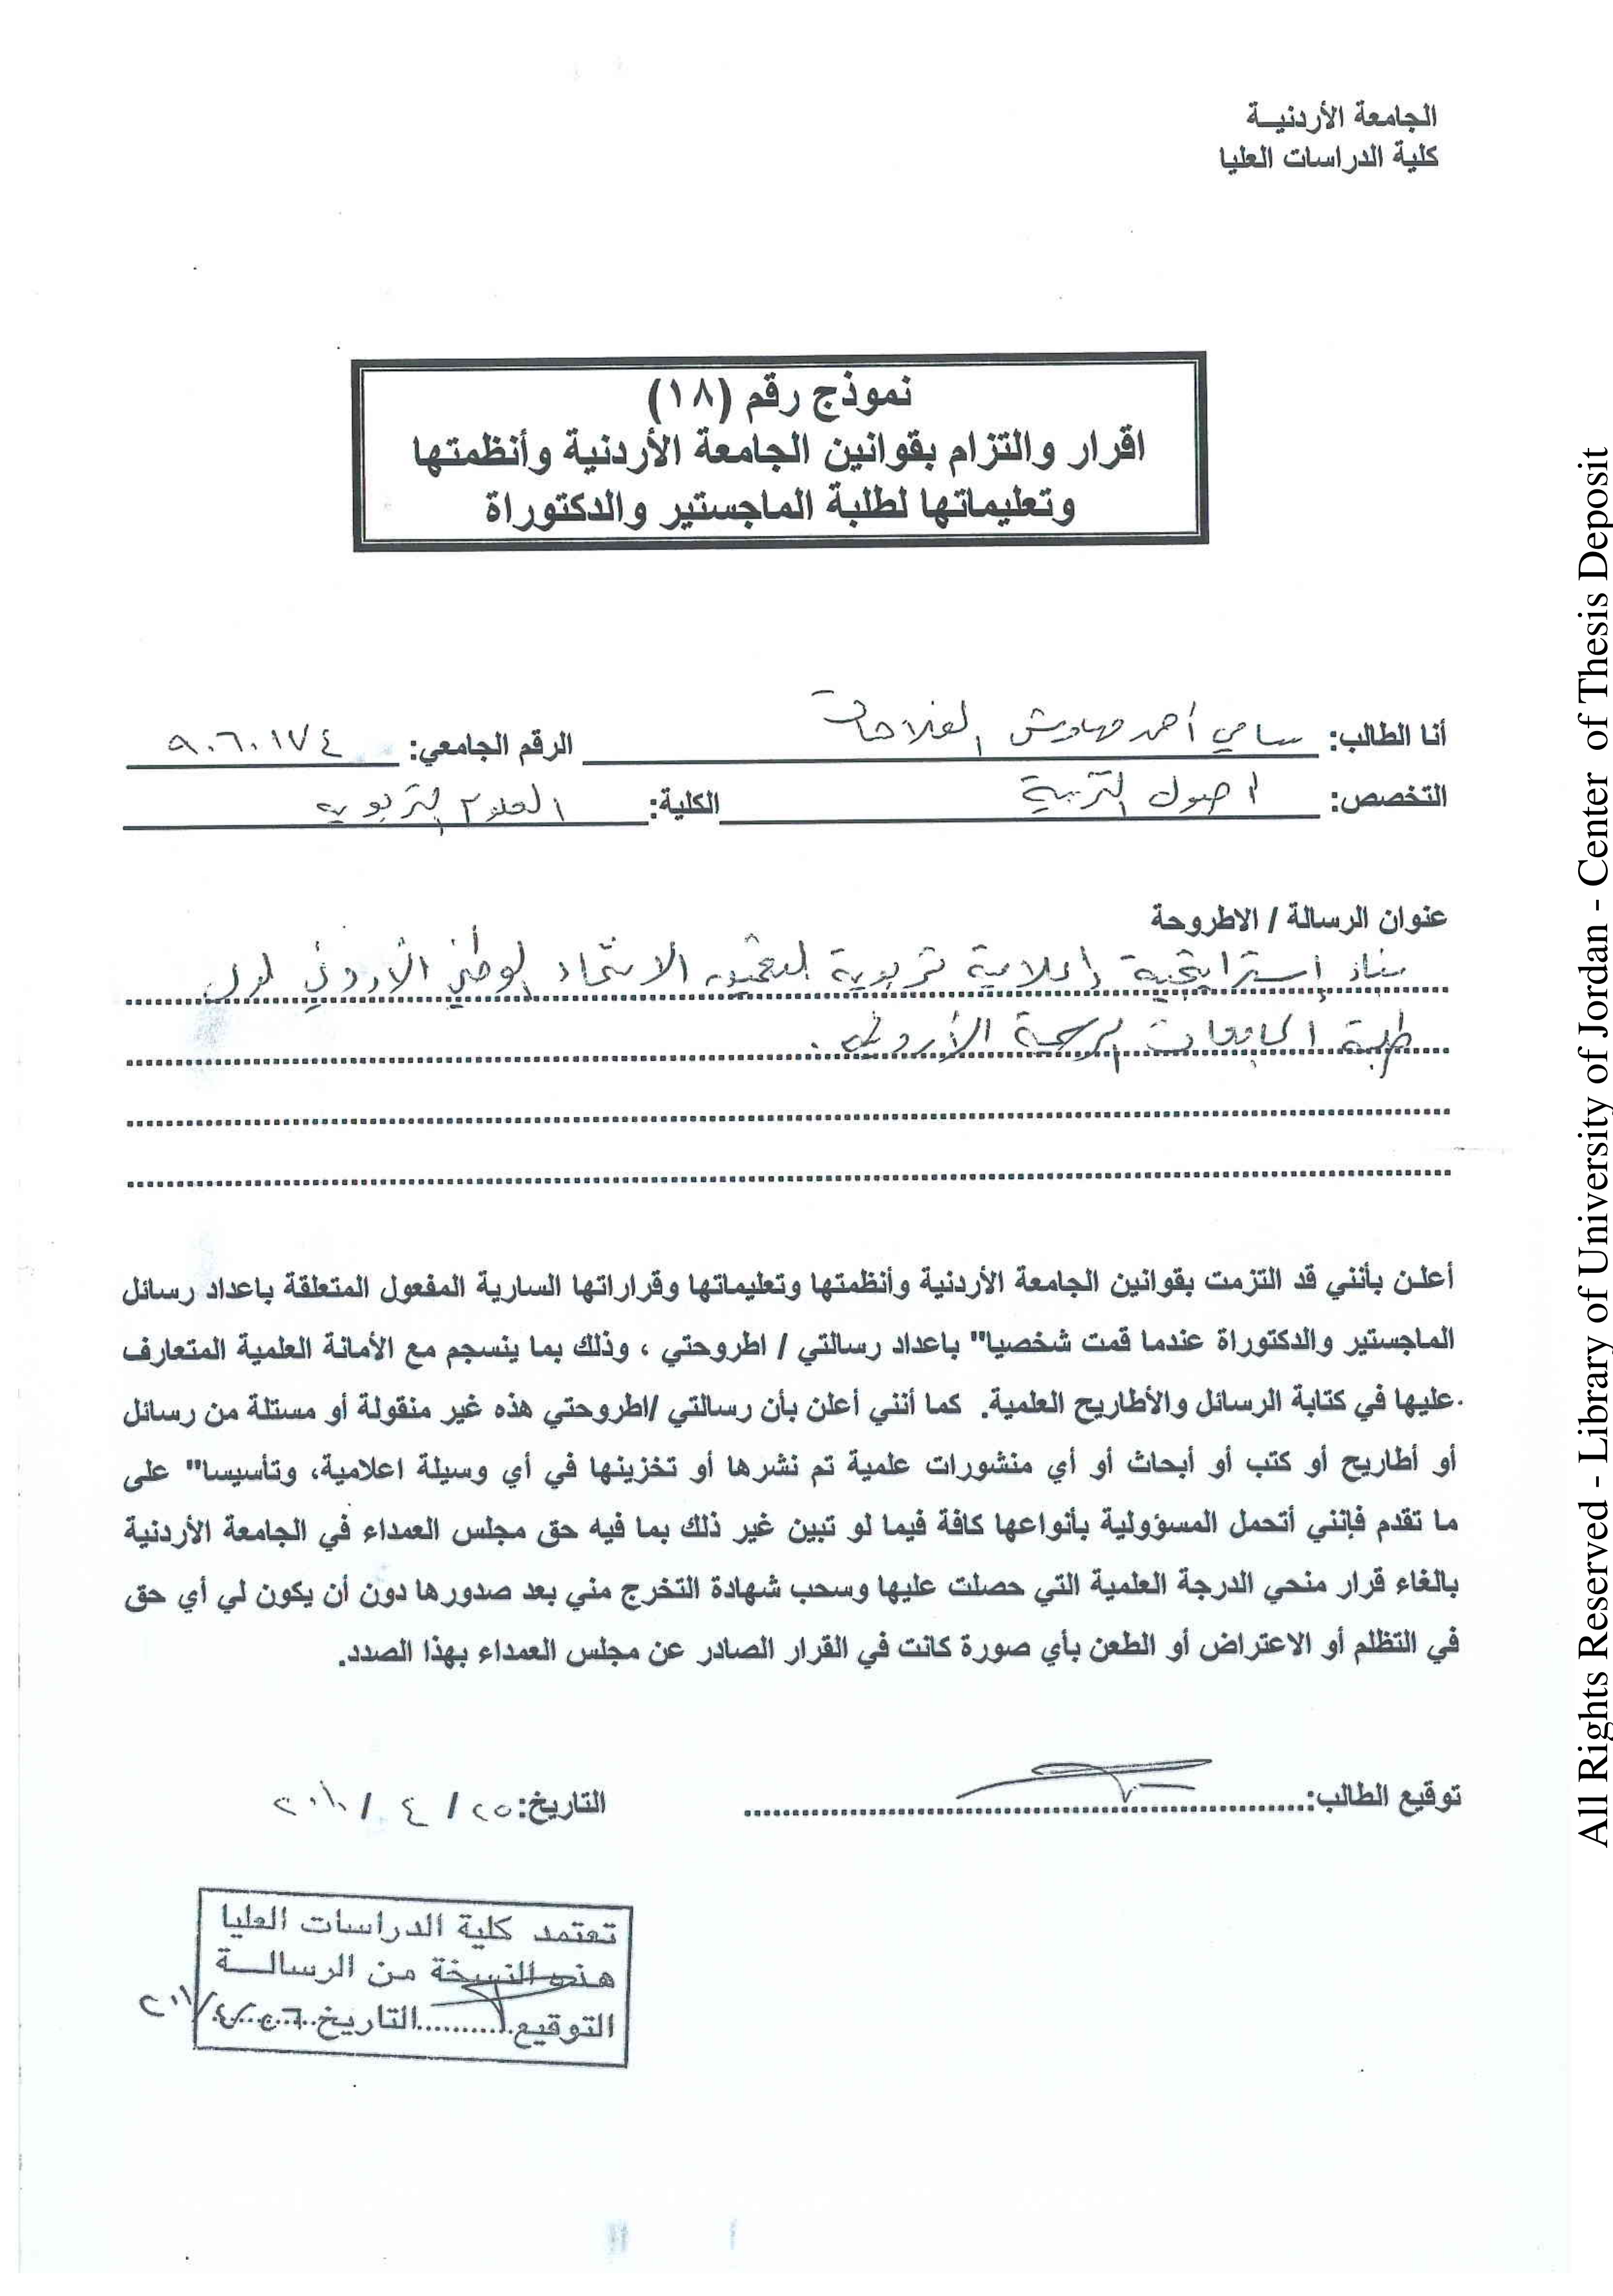 الجامعة الأردنيــة
كلية الدراسات العليا
نموذج رقم (١٨)
اقرار والتزام بقوانين الجامعة الأردنية وأنظمتها
وتعليماتها لطلبة الماجستير والدكتوراة
أنا الطالب: سامي أحمد مهاوش الفلاحات الرقم الجامعي: ٩٠٦٠١٧٤
التخصص: اصول التربية الكلية: العلوم التربوية
عنوان الرسالة / الاطروحة
بناء إستراتيجية إعلامية تربوية لتعميق الانتماء الوطني الأردني لدى
طلبة الجامعات الرسمية الأردنية.
أعلن بأنني قد التزمت بقوانين الجامعة الأردنية وأنظمتها وتعليماتها وقراراتها السارية المفعول المتعلقة باعداد رسائل
الماجستير والدكتوراة عندما قمت شخصيا" باعداد رسالتي / اطروحتي ، وذلك بما ينسجم مع الأمانة العلمية المتعارف
عليها في كتابة الرسائل والأطاريح العلمية. كما أنني أعلن بأن رسالتي /اطروحتي هذه غير منقولة أو مستلة من رسائل
أو أطاريح أو كتب أو أبحاث أو أي منشورات علمية تم نشرها أو تخزينها في أي وسيلة اعلامية، وتأسيسا" على
ما تقدم فإنني أتحمل المسؤولية بأنواعها كافة فيما لو تبين غير ذلك بما فيه حق مجلس العمداء في الجامعة الأردنية
بالغاء قرار منحي الدرجة العلمية التي حصلت عليها وسحب شهادة التخرج مني بعد صدورها دون أن يكون لي أي حق
في التظلم أو الاعتراض أو الطعن بأي صورة كانت في القرار الصادر عن مجلس العمداء بهذا الصدد.
توقيع الطالب: التاريخ: ٢٥ / ٤ /
تعتمد كلية الدراسات العليا
هذه النسخة من الرسالــة
التوقيع..........التاريخ
All Rights Reserved - Library of University of Jordan - Center of Thesis Deposit